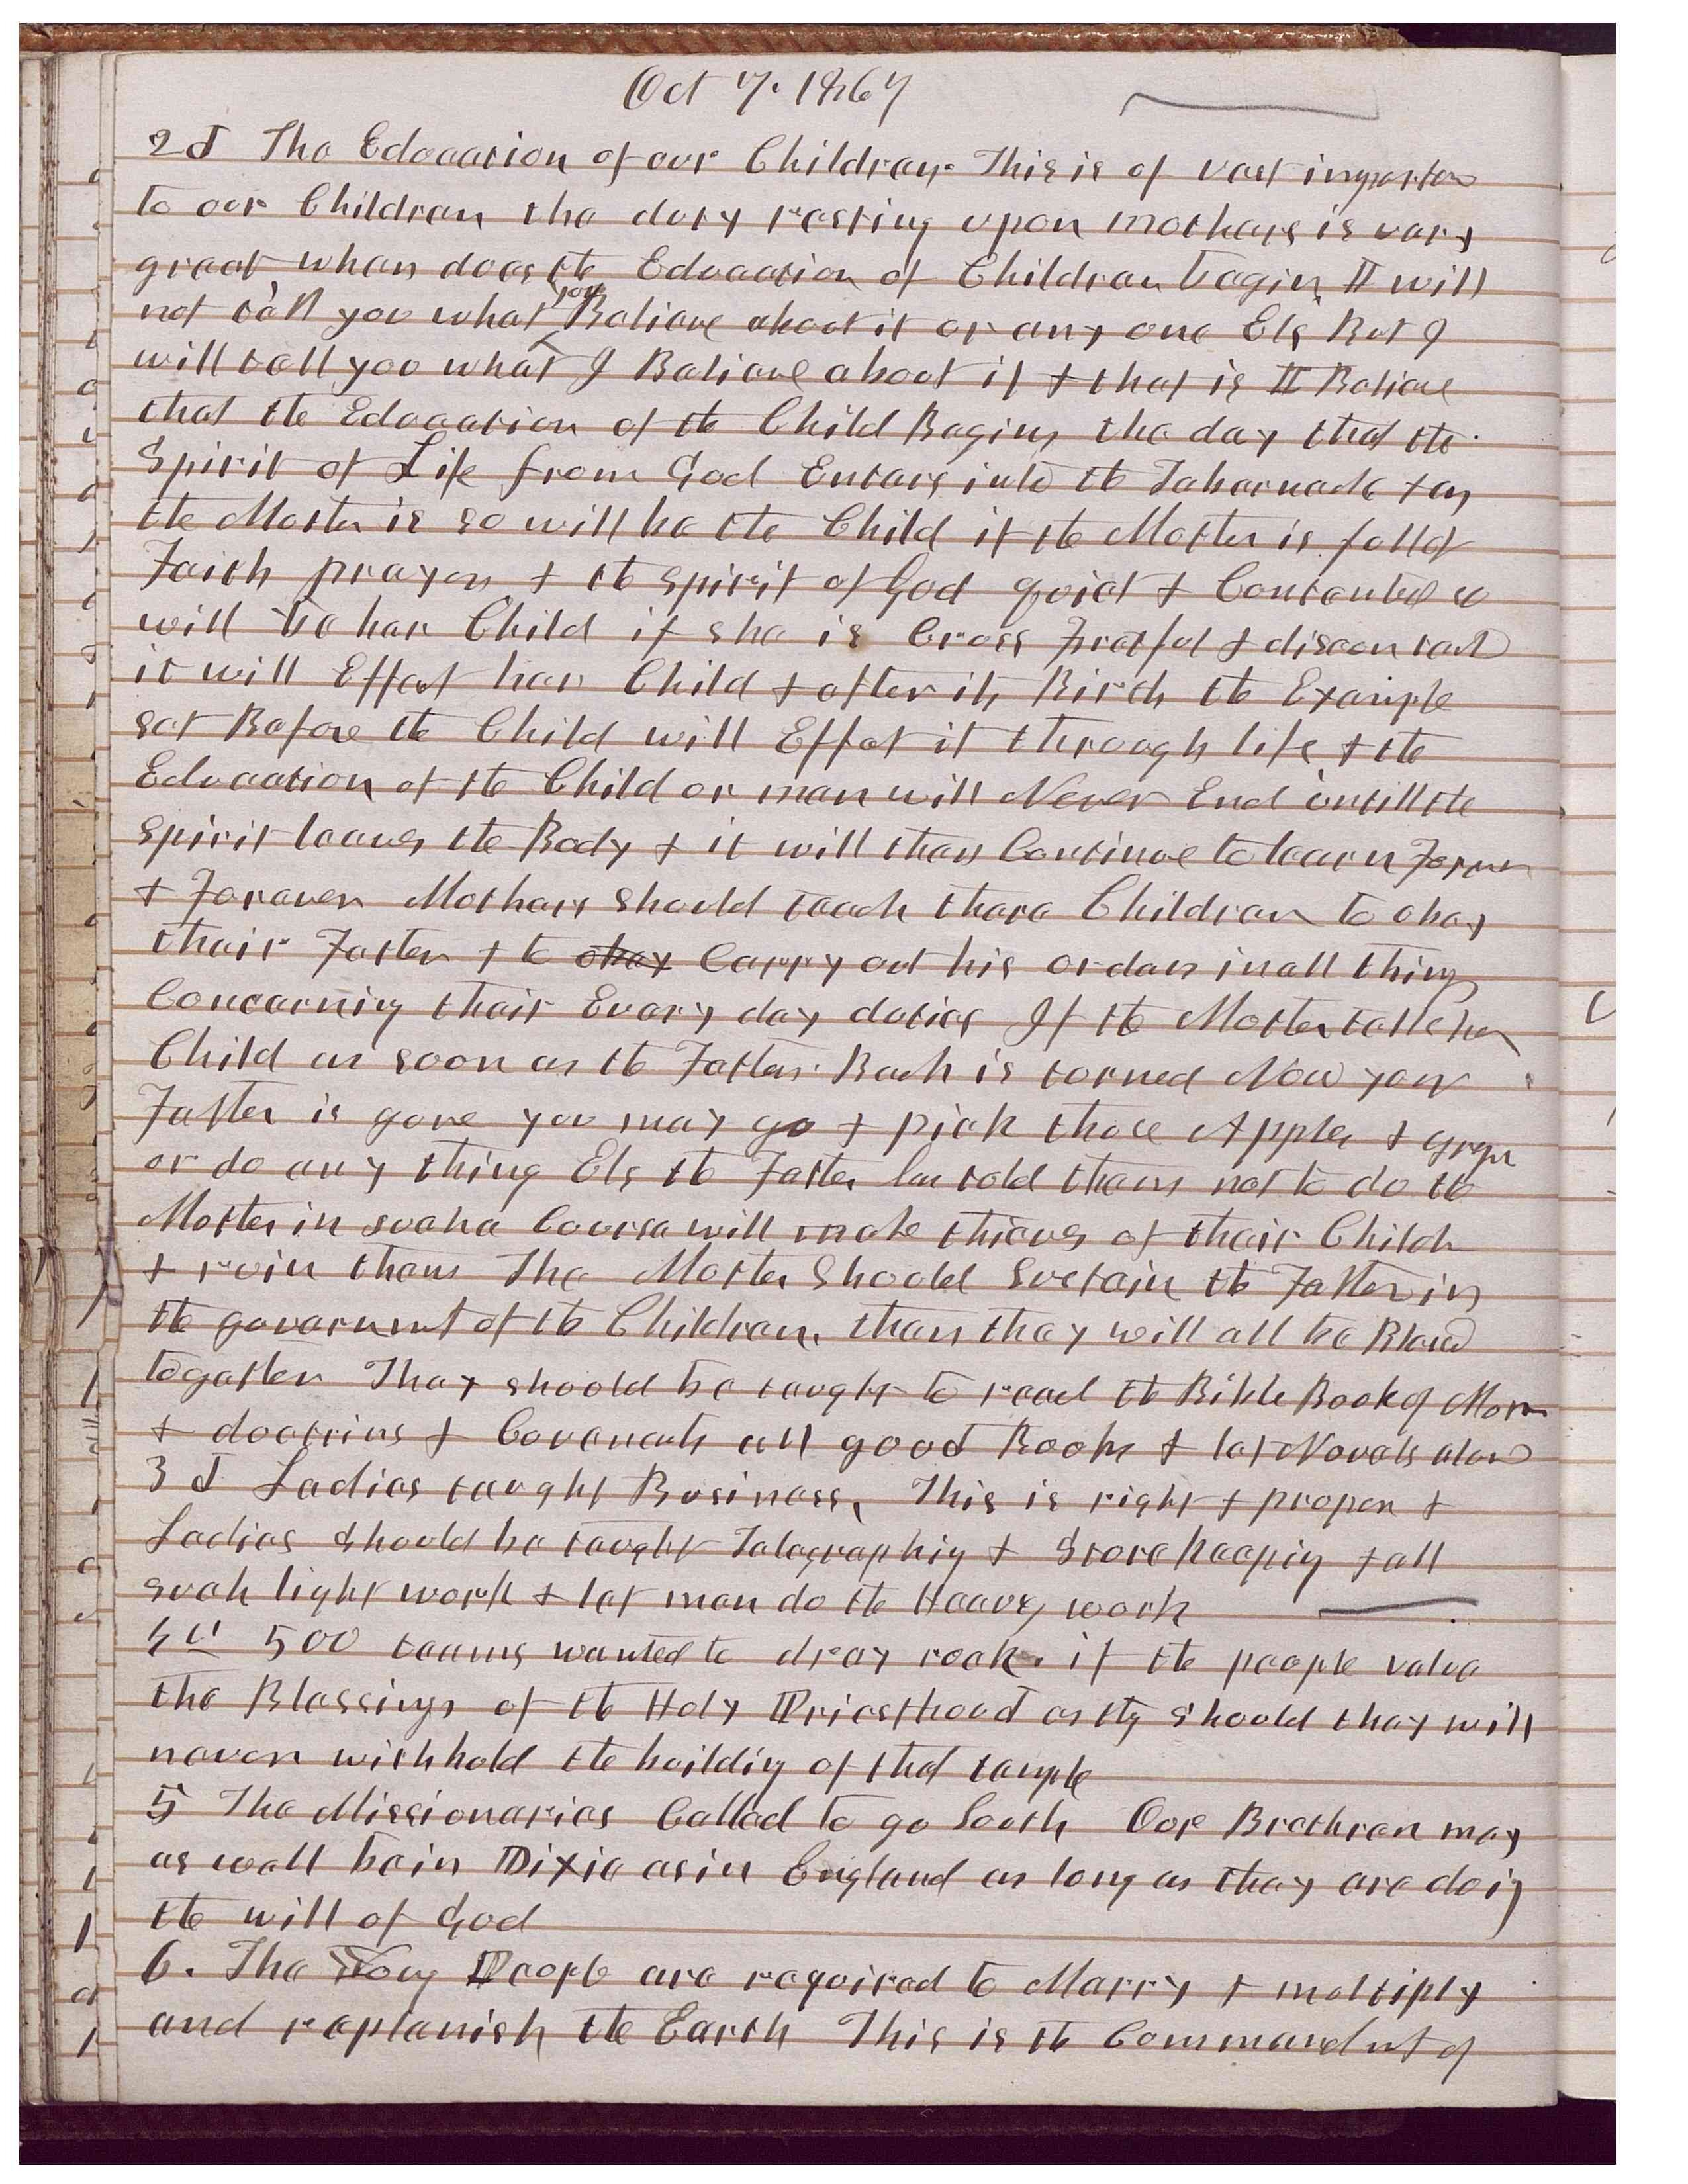 Oct 7. 1867
2d The Education of our Children. This is of vast importan
to our Children the duty resting upon mothers is very
great when does the Education of Children begin II will
not tell you what you Believe about it or any one Els But I
will tell you what I Believe about it & that is II Believe
that the Education of the Child Begins the day that the
Spirit of Life from God Enters into the Tabernacle & as
the Mother is so will be the Child if the Mother is full of
Faith prayer & the spirit of God quiet & Contented so
will be her Child if she is Cross fretful & discontent
it will Effect her Child & after its Birth the Example
set Before the Child will Effect it through life & the
Education of the Child or man will Never End untill the
spirit leaves the Body & it will then Continue to learn Forever
& Forever Mothers should teach there Children to obey
their Father & to obey Carry out his orders in all things
Concerning their Every day duties If the Mother tells her
Child as soon as the Fathers Back is turned Now your
Father is gone you may go & pick those Apples & grapes
or do any thing Els the Father has told them not to do the
Mother in such a Course will make thieves of their Childr
& ruin them The Mother Should Sustain the Father in
the government of the Children. then they will all be Blessed
together They should be taught to read the Bible Book of Morm
& doctrins & Covenants all good Books & let Novels alone
3d Ladies taught Business, This is right & proper &
Ladies should be taught Telegraphing & Store keeping & all
such light work & let men do the Heavy work
4th 500 teams wanted to dray rock. if the people value
the Blessings of the Holy Priesthood as they should they will
never withhold the building of that temple
5 The Missionaries Called to go South Our Brethren may
as well be in Dixie as in England as long as they are doing
the will of God
6. The Young People are required to Marry & multiply
and replenish the Earth This is the Commandmt of